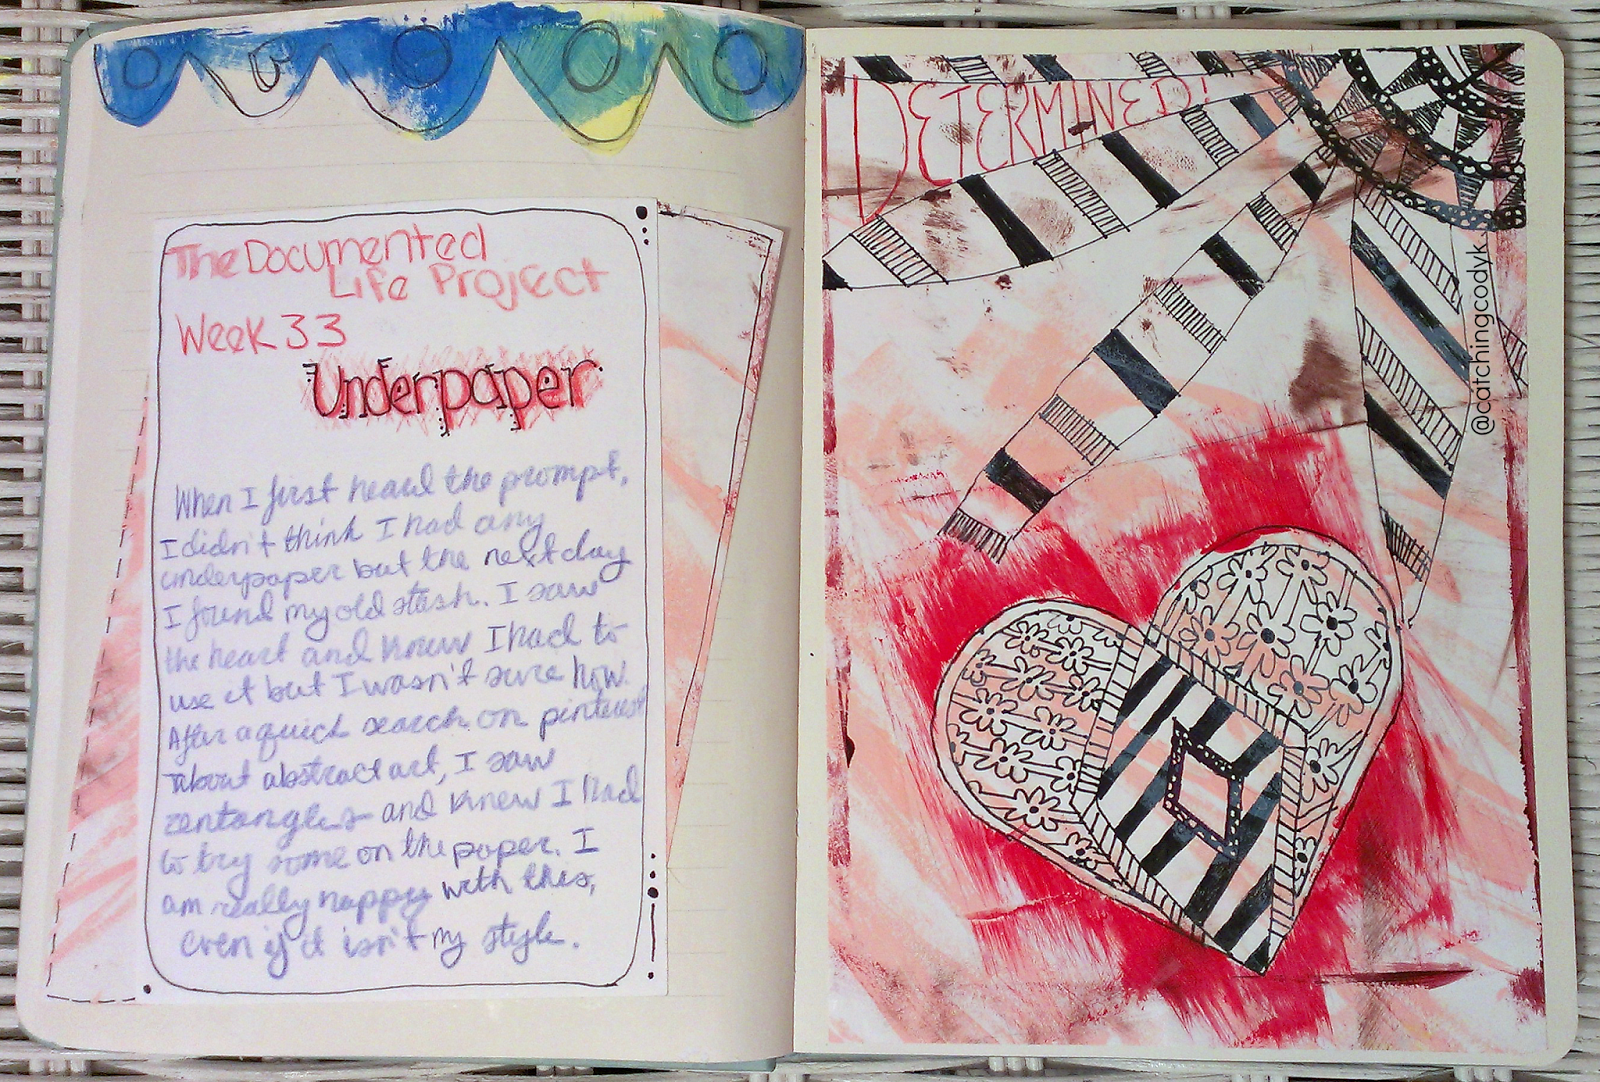 The Documented
Life Project
Week 33
Underpaper
When I first heard the prompt,
I didn't think I had any
underpaper but the next day
I found my old stash. I saw
the heart and knew I had to
use it but I wasn't sure how.
After a quick search on pinterest
about abstract art, I saw
zentangles and knew I had
to try some on the paper. I
am really happy with this,
even if it isn't my style.
DETERMINED!
@catchingcodyk